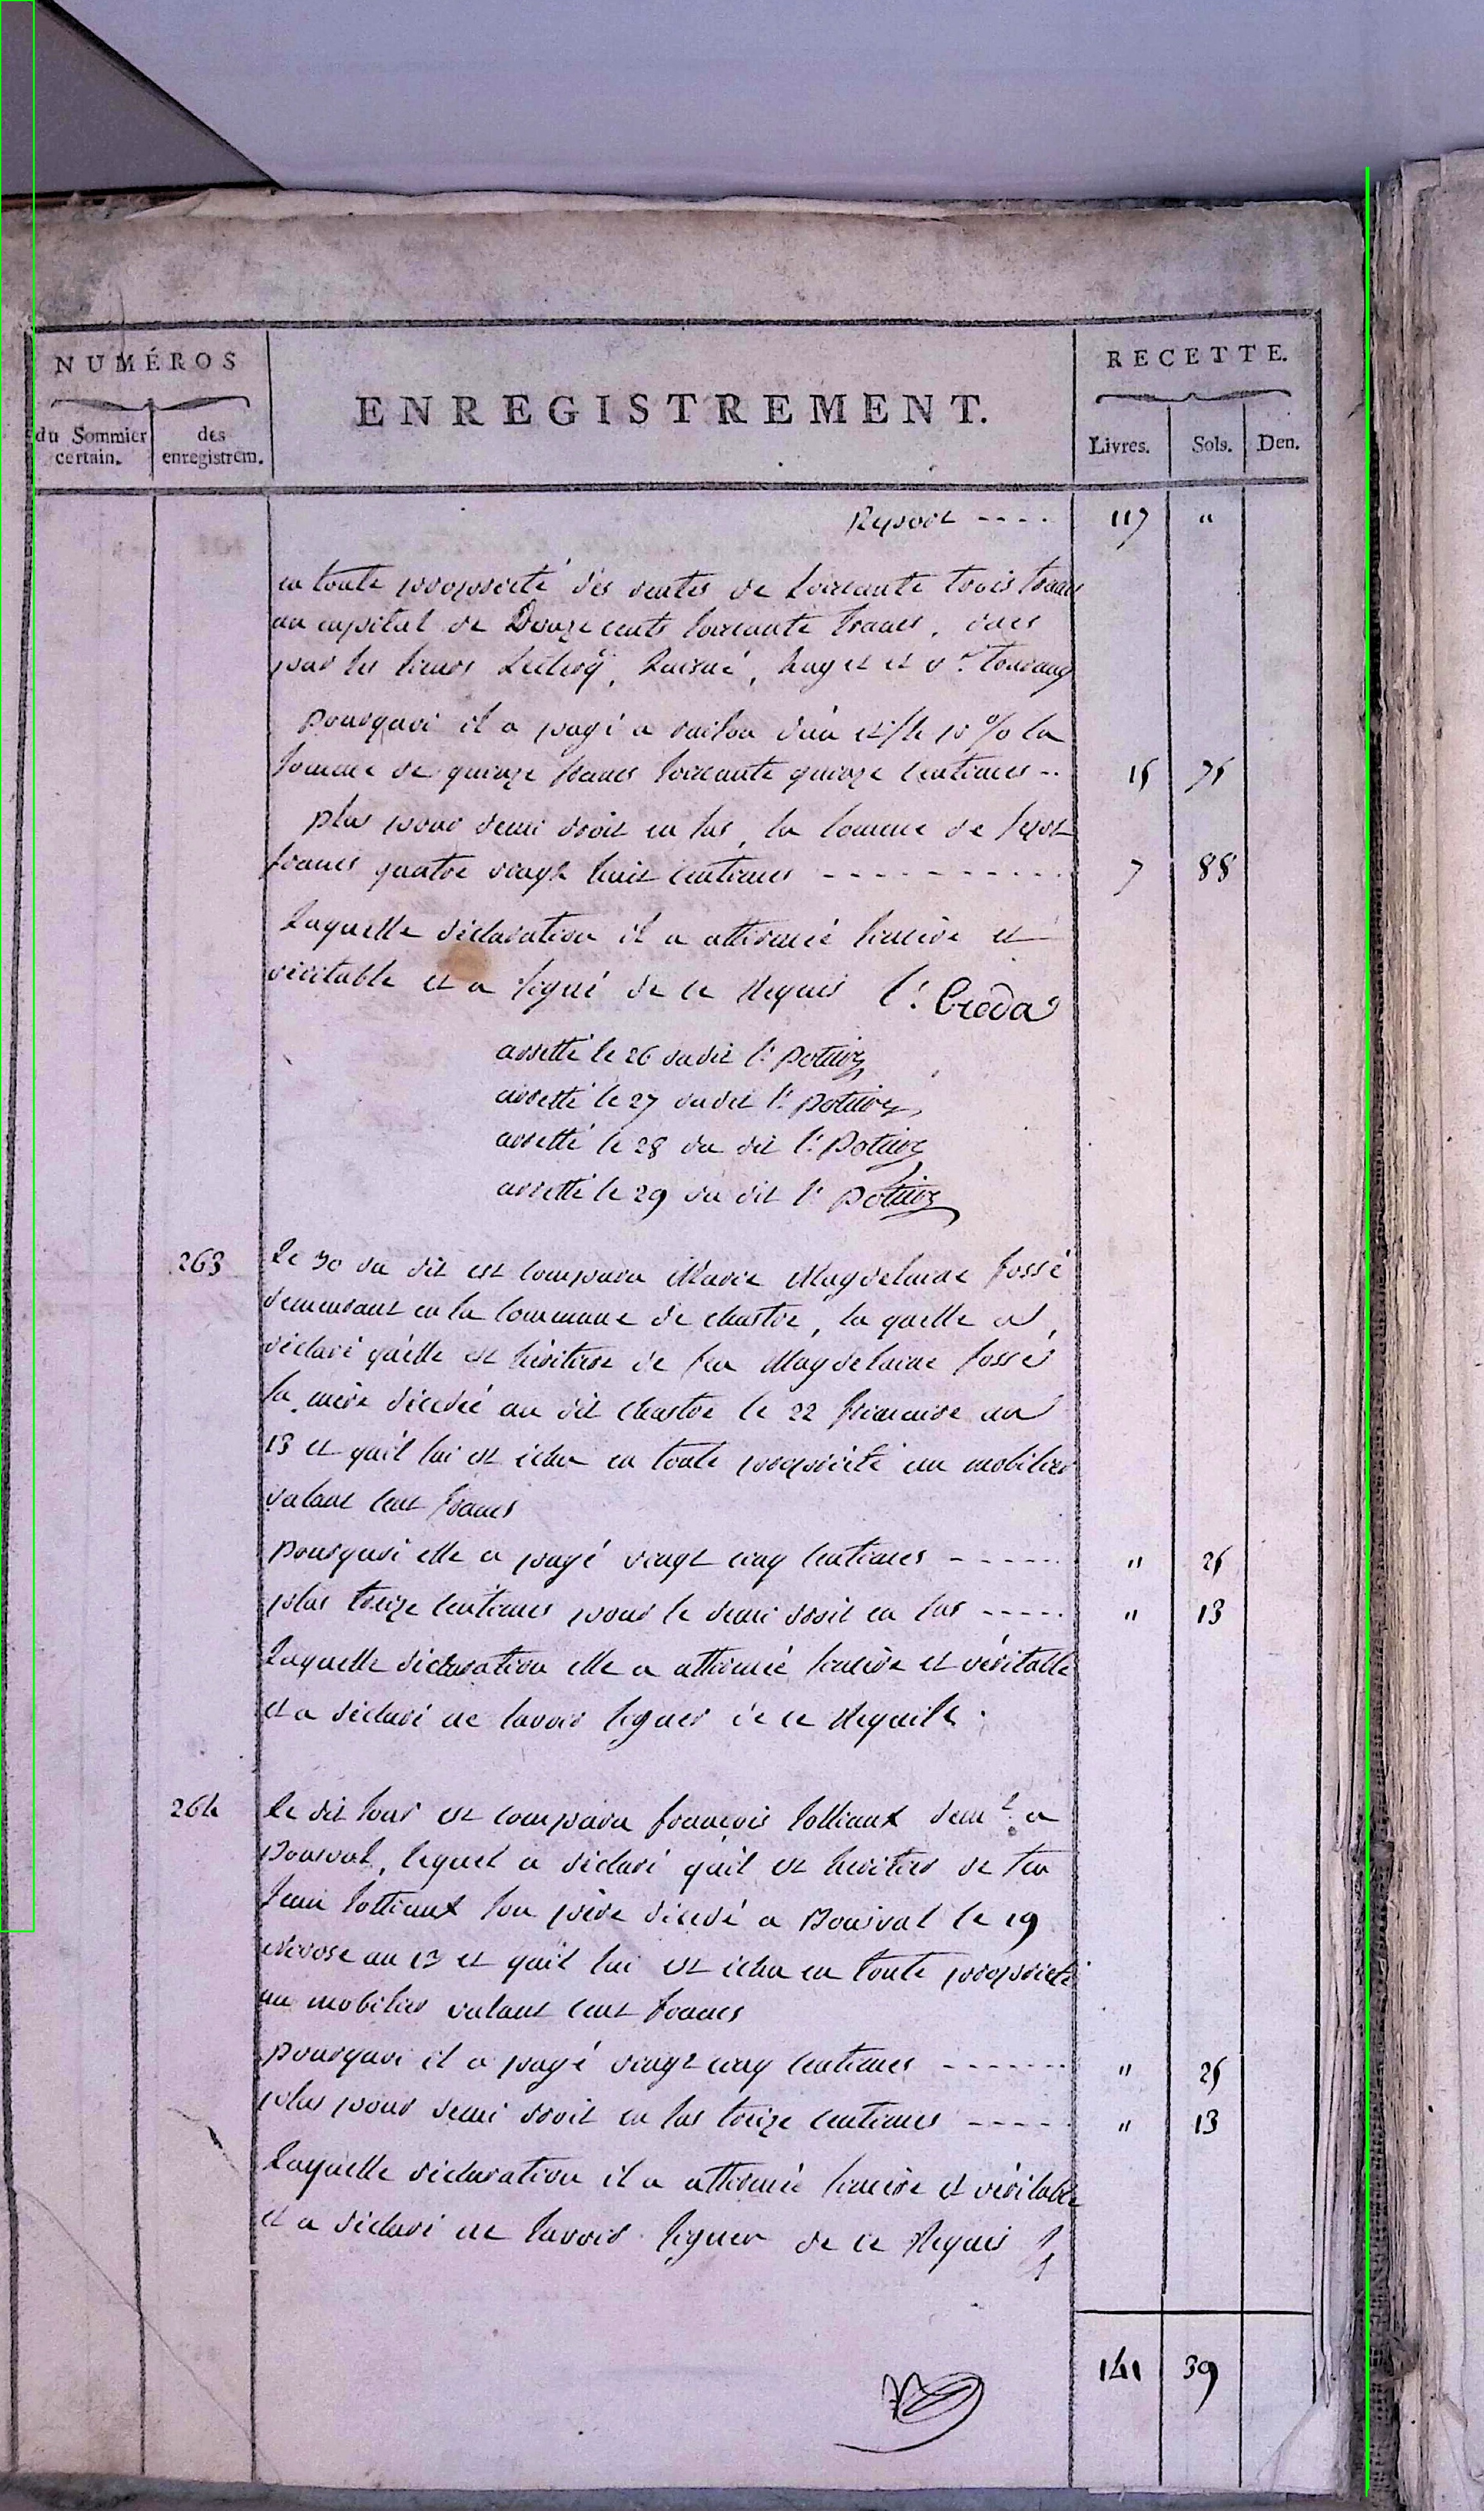 NUMÉROS
du Sommier certain.
des enregistrem.
ENREGISTREMENT.
RECETTE.
Livres. Sols. Den.
Report ---- 117 "
en toute propriété des rentes de soixante trois francs
au capital de Douze cents soixante francs, dues
par les sieurs Leclercq, , et
pourquoi il a payé a raison d'un et/le pr % la
somme de quinze francs soixante quinze centimes -- 15 75
plus pour demi droit en sus, la somme de sept
francs quatre vingt huit centimes ---------- 7 88
Laquelle déclaration il a affirmée sincère et
véritable et a signé de ce Requis
arretté le 26 du dit
arretté le 27 du dit
arretté le 28 du dit
arretté le 29 du dit
263 Le 30 du dit est comparu Marie Magdelaine fossé
demeurant en la commune de chastre, la quelle a
déclaré qu'elle est héritière de feu Magdelaine fossé
sa mère décédé au dit chastre le 22 frimaire an
13 et qu'il lui est échu en toute propriété un mobilier
valant cent francs
pourquoi elle a payé vingt cinq centimes ------ " 25
plus treize centimes pour le demi droit en sus ----- " 13
Laquelle déclaration elle a affirmée sincère et véritable
et a déclaré ne savoir signer de ce Requise.
264 le dit jour est comparu françois dem.t a
Bousval, lequel a déclaré qu'il est héritier de feu
Jean son père décédé a Bousval le 19
nivose an 13 et qu'il lui est échu en toute propriété
un mobilier valant cent francs
pourquoi il a payé vingt cinq centimes ------- " 25
plus pour demi droit en sus treize centimes ----- " 13
Laquelle déclaration il a affirmée sincère et véritable
et a déclaré ne savoir signer de ce Requis
141 39